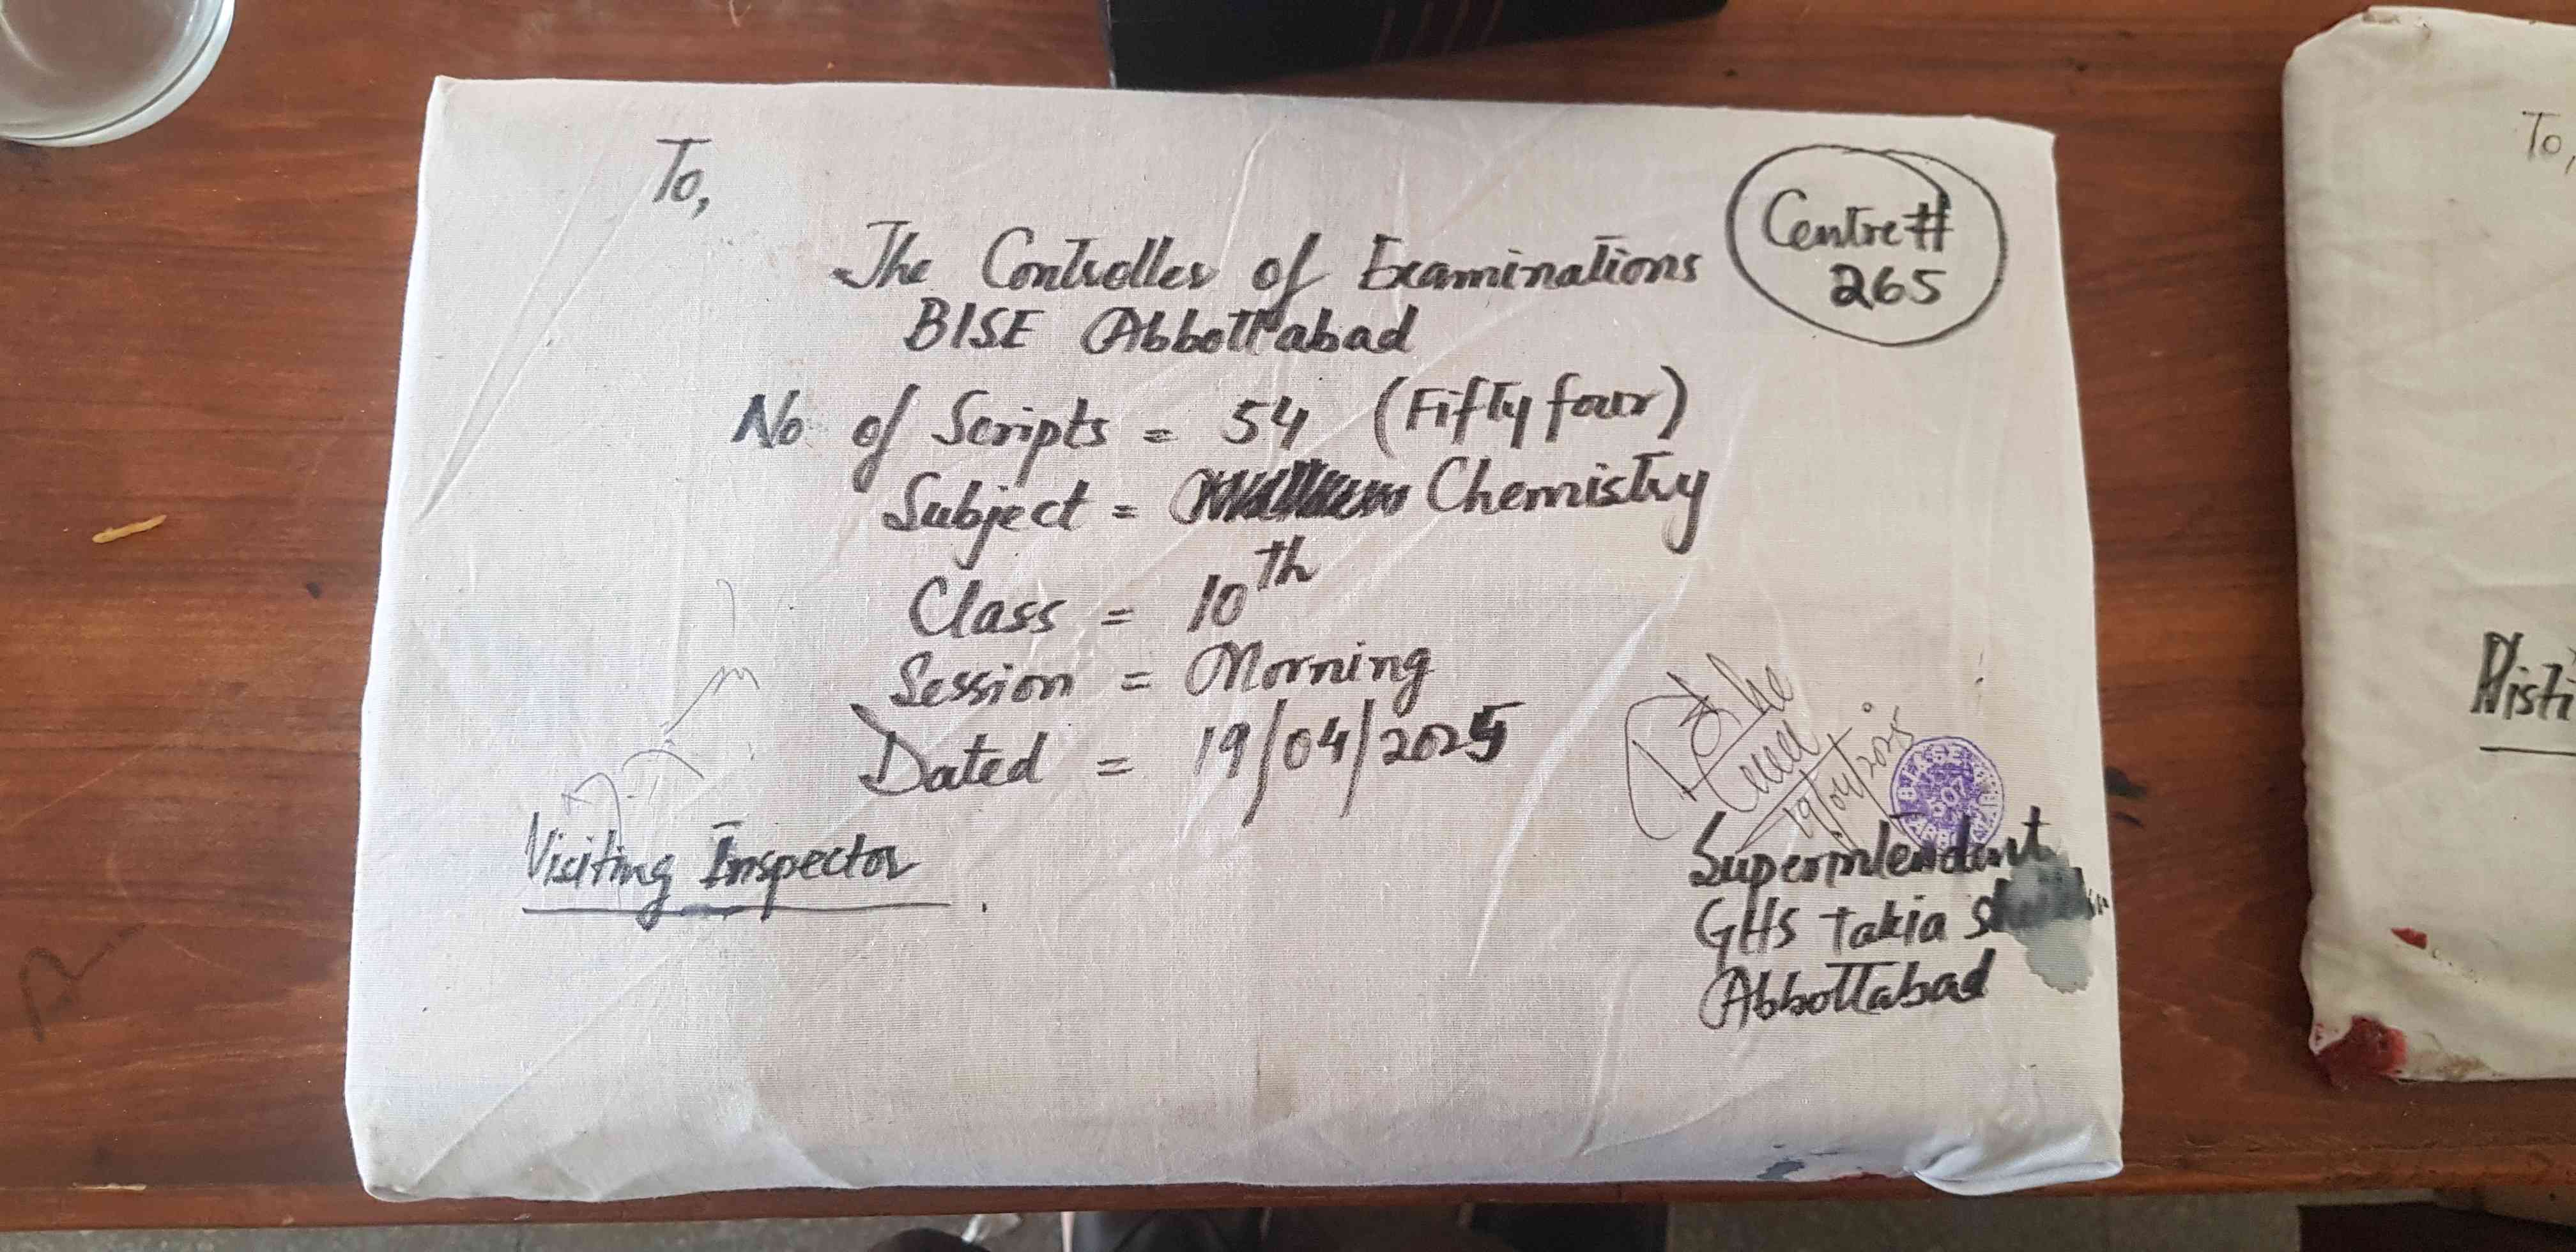 To,
Centre #
265
The Controller of Examinations
BISE Abbottabad
No of Scripts = 54 (Fifty four)
Subject = Chemistry
Class = 10th
Session = Morning
Dated = 19/04/2025
19/04/2025
Visiting Inspector
Superintendent
GHS Takia
Abbottabad
To,